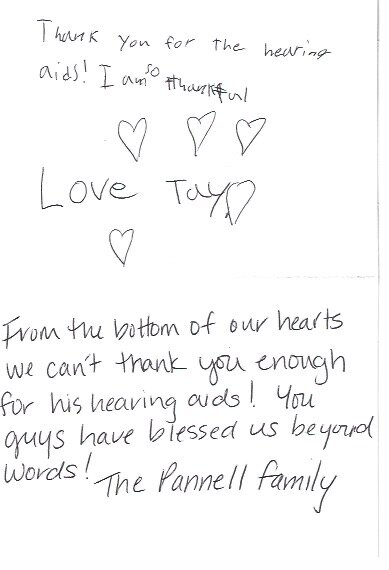 Thank you for the hearing
aids! I am so thankful
Love Tay
From the bottom of our hearts
we can't thank you enough
for his hearing aids! You
guys have blessed us beyond
words! The Pannell family